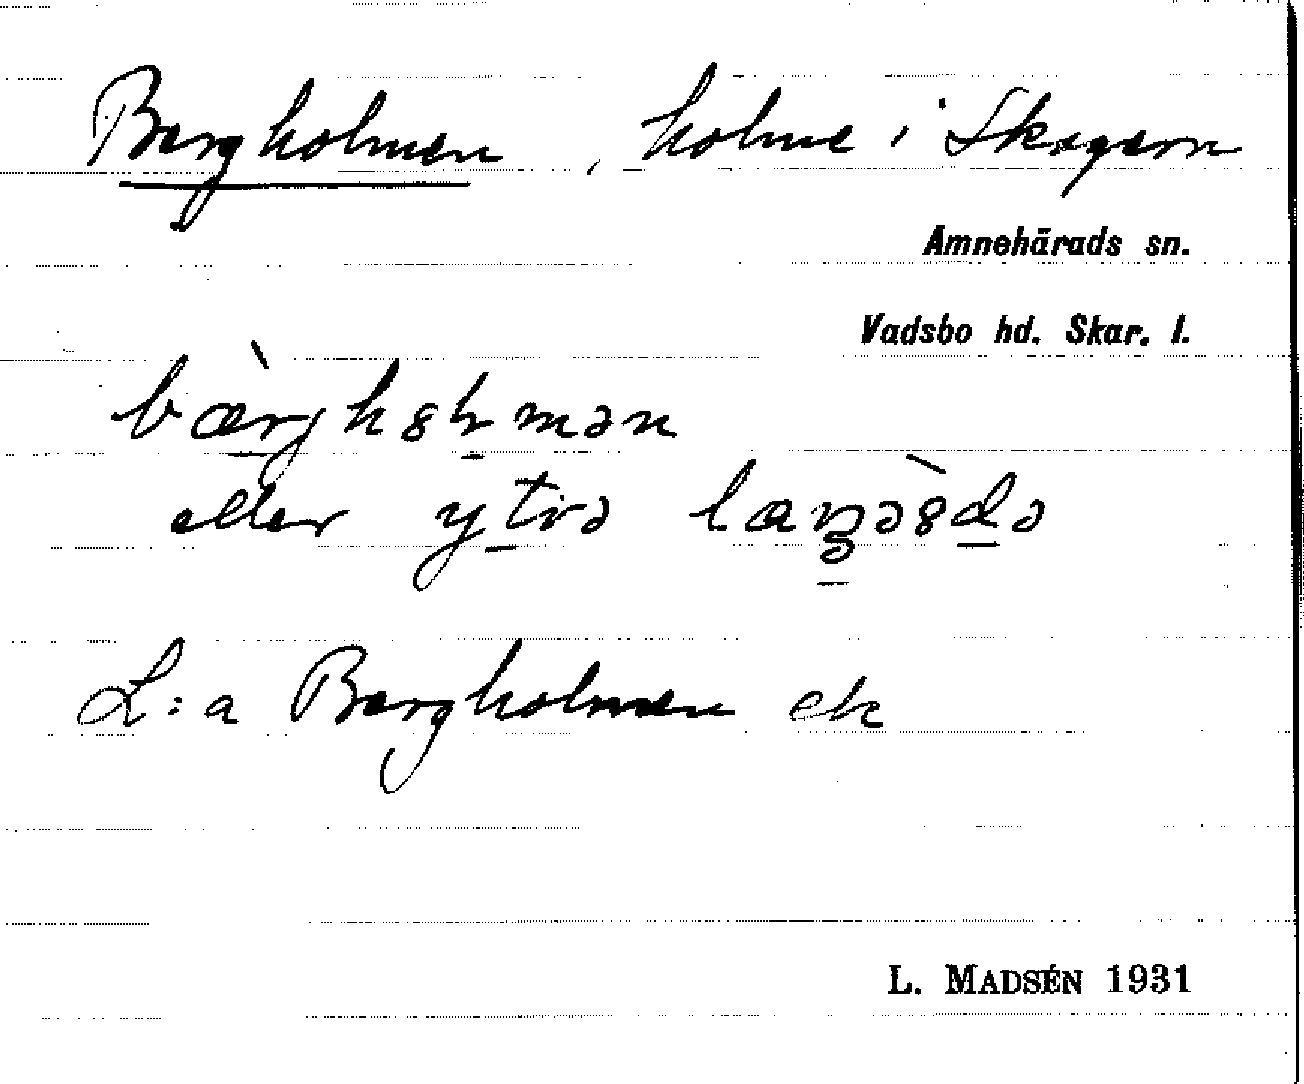 Bergholmen, holme i Skagern
Amnehärads sn.
Vadsbo hd. Skar. l.
bæ̀rghȣɫmən
eller ytrə læŋəȣ̀də
L:a Bergholmen ek
L. MADSÉN 1931